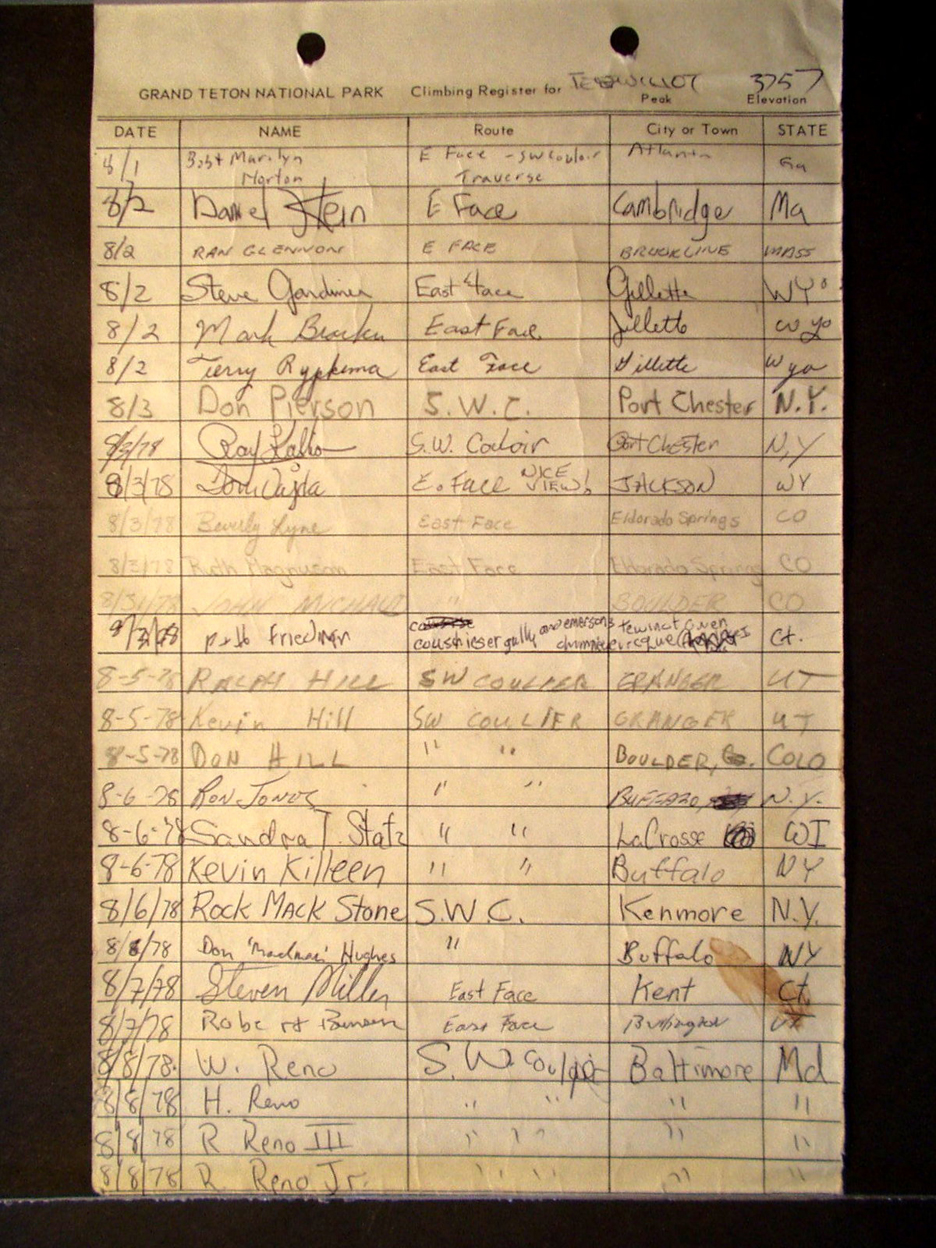 GRAND TETON NATIONAL PARK Climbing Register for TEEWINOT 3757
Peak Elevation
DATE NAME Route City or Town STATE
8/1 Bob + Marilyn E Face - SW Couloir Atlanta Ga
Horton Traverse
8/2 Daniel Stein E Face Cambridge Ma
8/2 RAN GLENNON E FACE BROOKLINE MASS
8/2 Steve Gardiner East Face Gillette WYO
8/2 Mark East Face Gillette Wyo
8/2 Terry Rypkema East Face Gillette Wyo
8/3 Don Pierson S.W.C. Port Chester N.Y.
8/3/78 Ray S.W. Couloir Port Chester N,Y
8/3/78 E. Face NICE VIEW! JACKSON WY
8/3/78 Beverly Lyne East Face Eldorado Springs CO
8/3/78 Ruth Magnuson East Face Eldorado Springs CO
8/3/78 JOHN BOULDER CO
Friedman gully and emersons chimney ct.
8-5-78 RALPH HILL SW COULIER GRANGER UT
8-5-78 Kevin Hill SW COULIER GRANGER UT
8-5-78 DON HILL " " BOULDER, COLO
8-6-78 RON JONES " " BUFFALO, N.Y.
8-6-78 Sandra T. Statz " " LaCrosse WI
8-6-78 Kevin Killeen " " Buffalo NY
8/6/78 ROCK MACK STONE S.W.C. Kenmore N.Y.
8/6/78 Don 'Madman' Hughes " Buffalo NY
8/7/78 Steven Miller East Face Kent Ct
8/7/78 Robert East Face Burlington
8/8/78. W. Reno S.W. Couloir Baltimore Md
8/8/78 H. Reno " " " "
8/8/78 R Reno III " " " " "
8/8/78 R. Reno Jr. " " " " " "